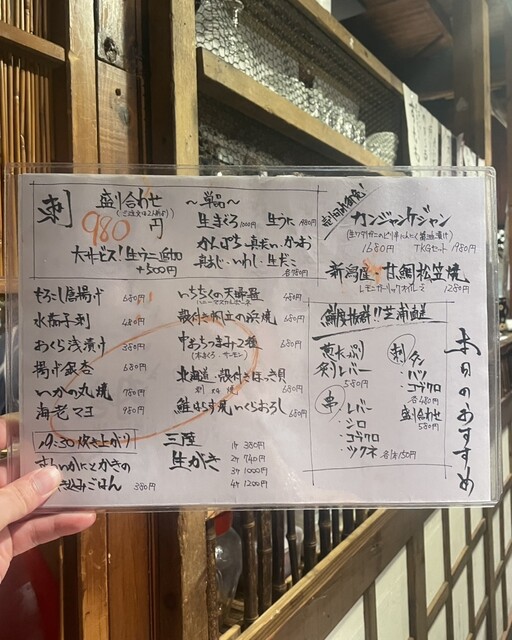 刺
盛り合わせ
(ご注文は2人前より)
980円
大サービス!生ウニ追加
+500円
〜単品〜
生まぐろ1000円 生うに980円
かんぱち・真だい・かつお
真あじ・いわし・生だこ
各780円
カンジャンケジャン
(生ワタリガニのピリ辛にんにく醤油漬け)
1680円 TKGセット1980円
新潟産・甘鯛松笠焼
レモンガーリックオイルで 1280円
本日のおすすめ
もろこし唐揚げ 680円
水茄子刺 480円
おくら浅漬け 380円
揚げ銀杏 680円
いかの丸焼 780円
海老マヨ 980円
いちぢくの天ぷら 480円
殻付き帆立の浜焼 680円
中おちつまみ2種 680円
(本まぐろ・サーモン)
北海道・殻付きほっき貝
刺 or 焼 680円
鮭はらす焼いくらおろし 680円
鮮度抜群!!芝浦直送
葱たっぷり
炙りレバー
580円
刺
・タン
・ハツ
・コブクロ
各480円
盛り合わせ
580円
串
・レバー
・シロ
・コブクロ
・ツクネ 各1本150円
19:30炊き上がり
ずわいがにとかきの
炊き込みごはん 380円
三陸
生がき
1ヶ 380円
2ヶ 740円
3ヶ 1000円
4ヶ 1200円